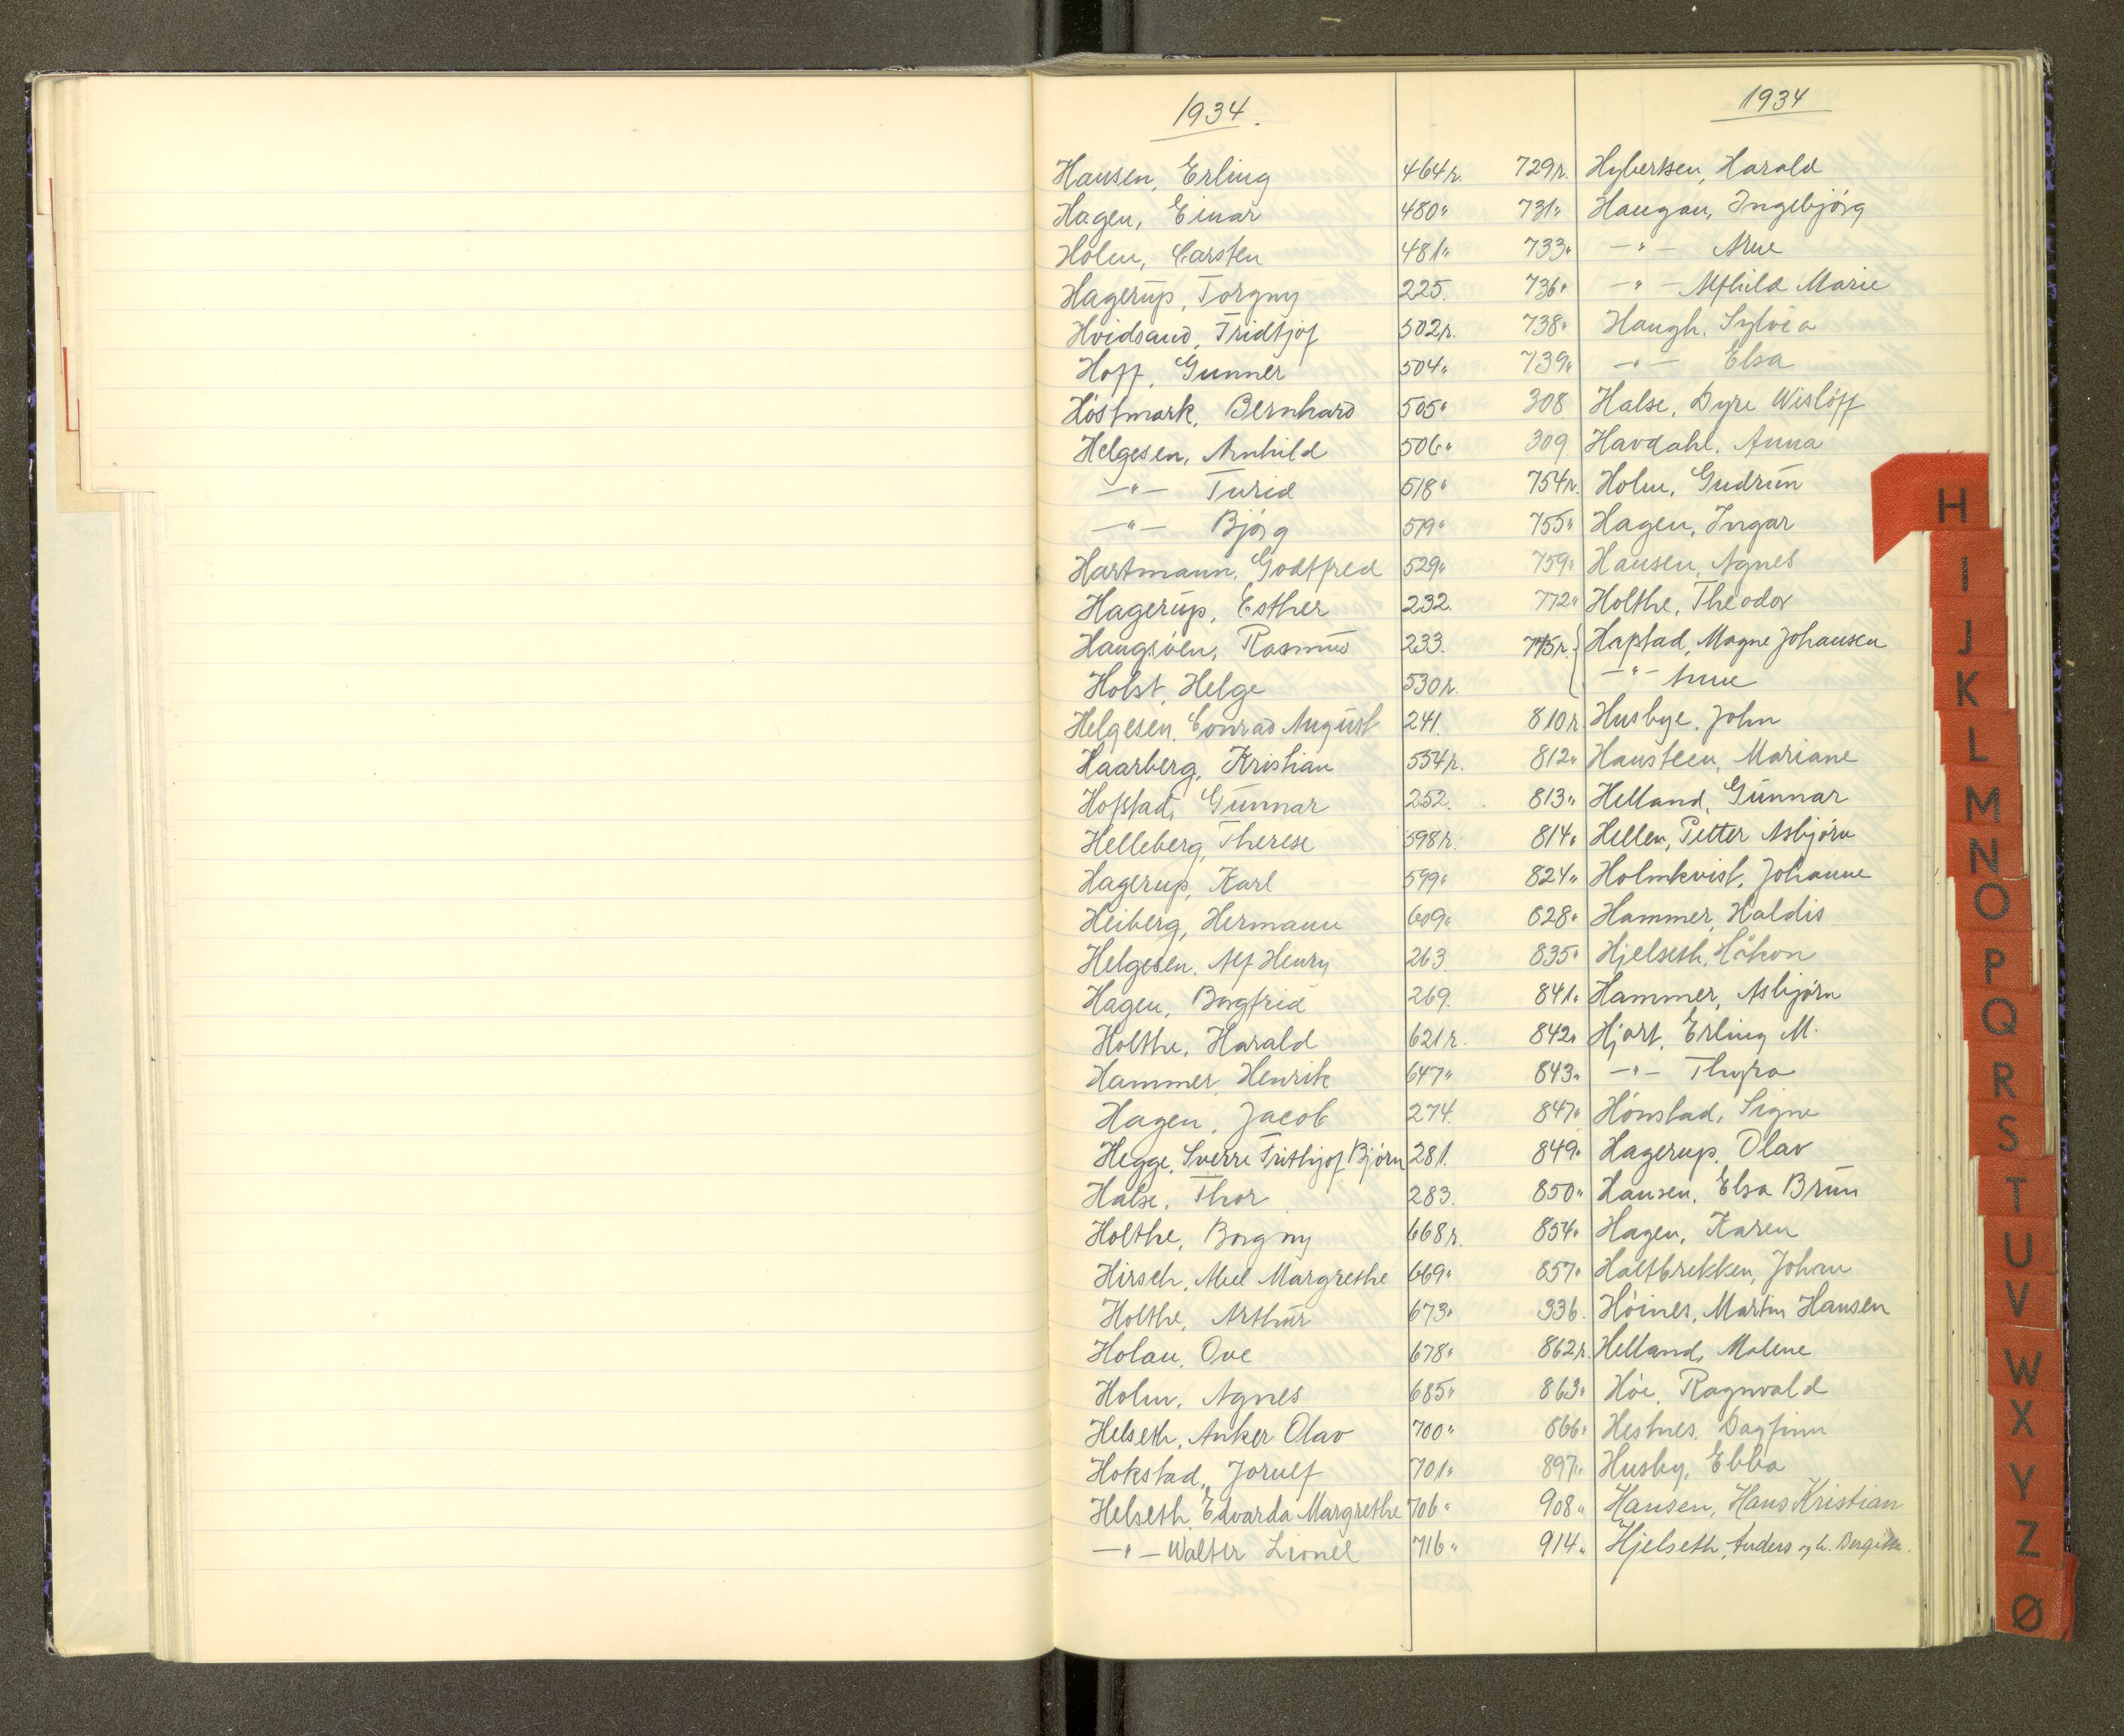 1934.
Hansen, Erling 464r.
Hagen, Einar 480"
Holm, Carsten 481"
Hagerup, Torgny 225.
Hvidsand, Fridtjof 502r.
Hoff, Gunner 504"
Höstmark, Bernhard 505"
Helgesen, Arnhild 506"
—"— Turid 518"
—"— Bjørg 519"
Hartmann, Godtfred 529"
Hagerup, Esther 232.
Haugsöen, Rasmus 233.
Holst, Helge 530r.
Helgesen, Conrad August 241.
Haarberg, Kristian 554r.
Hofstad, Gunnar 252.
Helleberg, Therese 598r.
Hagerup, Karl 599"
Heiberg, Hermann 609"
Helgesen, Alf Henry 263.
Hagen, Borgfrid 269.
Holthe, Harald 621r.
Hammer, Henrik 647"
Hagen, Jacob 274.
Hegge, Sverre Frithjof Bjørn 281.
Halse, Thor 283.
Holthe, Borgny 668r.
Hirsch, Margrethe 669"
Holthe, Arthur 673"
Holan, Ove 678"
Holm, Agnes 685"
Helseth, Anker Olav 700"
Hokstad, Jorulf 701"
Helseth, Edvarda Margrethe 706"
—"— Walter Lionel 716"
1934
729r. Hybertsen, Harald
731" Haugan, Ingebjörg
733" —"— Arne
736" —"— Alfhild Marie
738" Haugh, Sylvia
739" —"— Elsa
308 Halse, Dyre Wislöff
309 Havdahl, Anna
754r. Holm, Gudrun
755" Hagen, Ingar
759" Hansen, Agnes
772" Holthe, Theodor
Hapstad, Magne Johansen
—"— Anne
810r. Husbye, John
812" Hansteen, Mariane
813" Helland, Gunnar
814" Hellen, Petter Asbjörn
824" Holmkvist, Johanne
828" Hammer, Haldis
835" Hjelseth, Håkon
841" Hammer, Asbjørn
842" Hjort, Erling M.
843" —"— Thyra
847" Hönstad, Signe
849" Hagerup, Olav
850" Hansen, Elsa Brun
854" Hagen, Karen
857" Haltbrekken, Johan
336. Höines, Martin Hansen
862r. Helland, Malene
863" Höe, Ragnvald
866" Hestnes, Dagfinn
897" Husby, Ebba
908" Hansen, Hans Kristian
914" Hjelseth, Anders og h. Bergitte.
H
I
J
K
L
M
N
O
P
Q
R
S
T
U
V
W
X
Y
Z
Ø